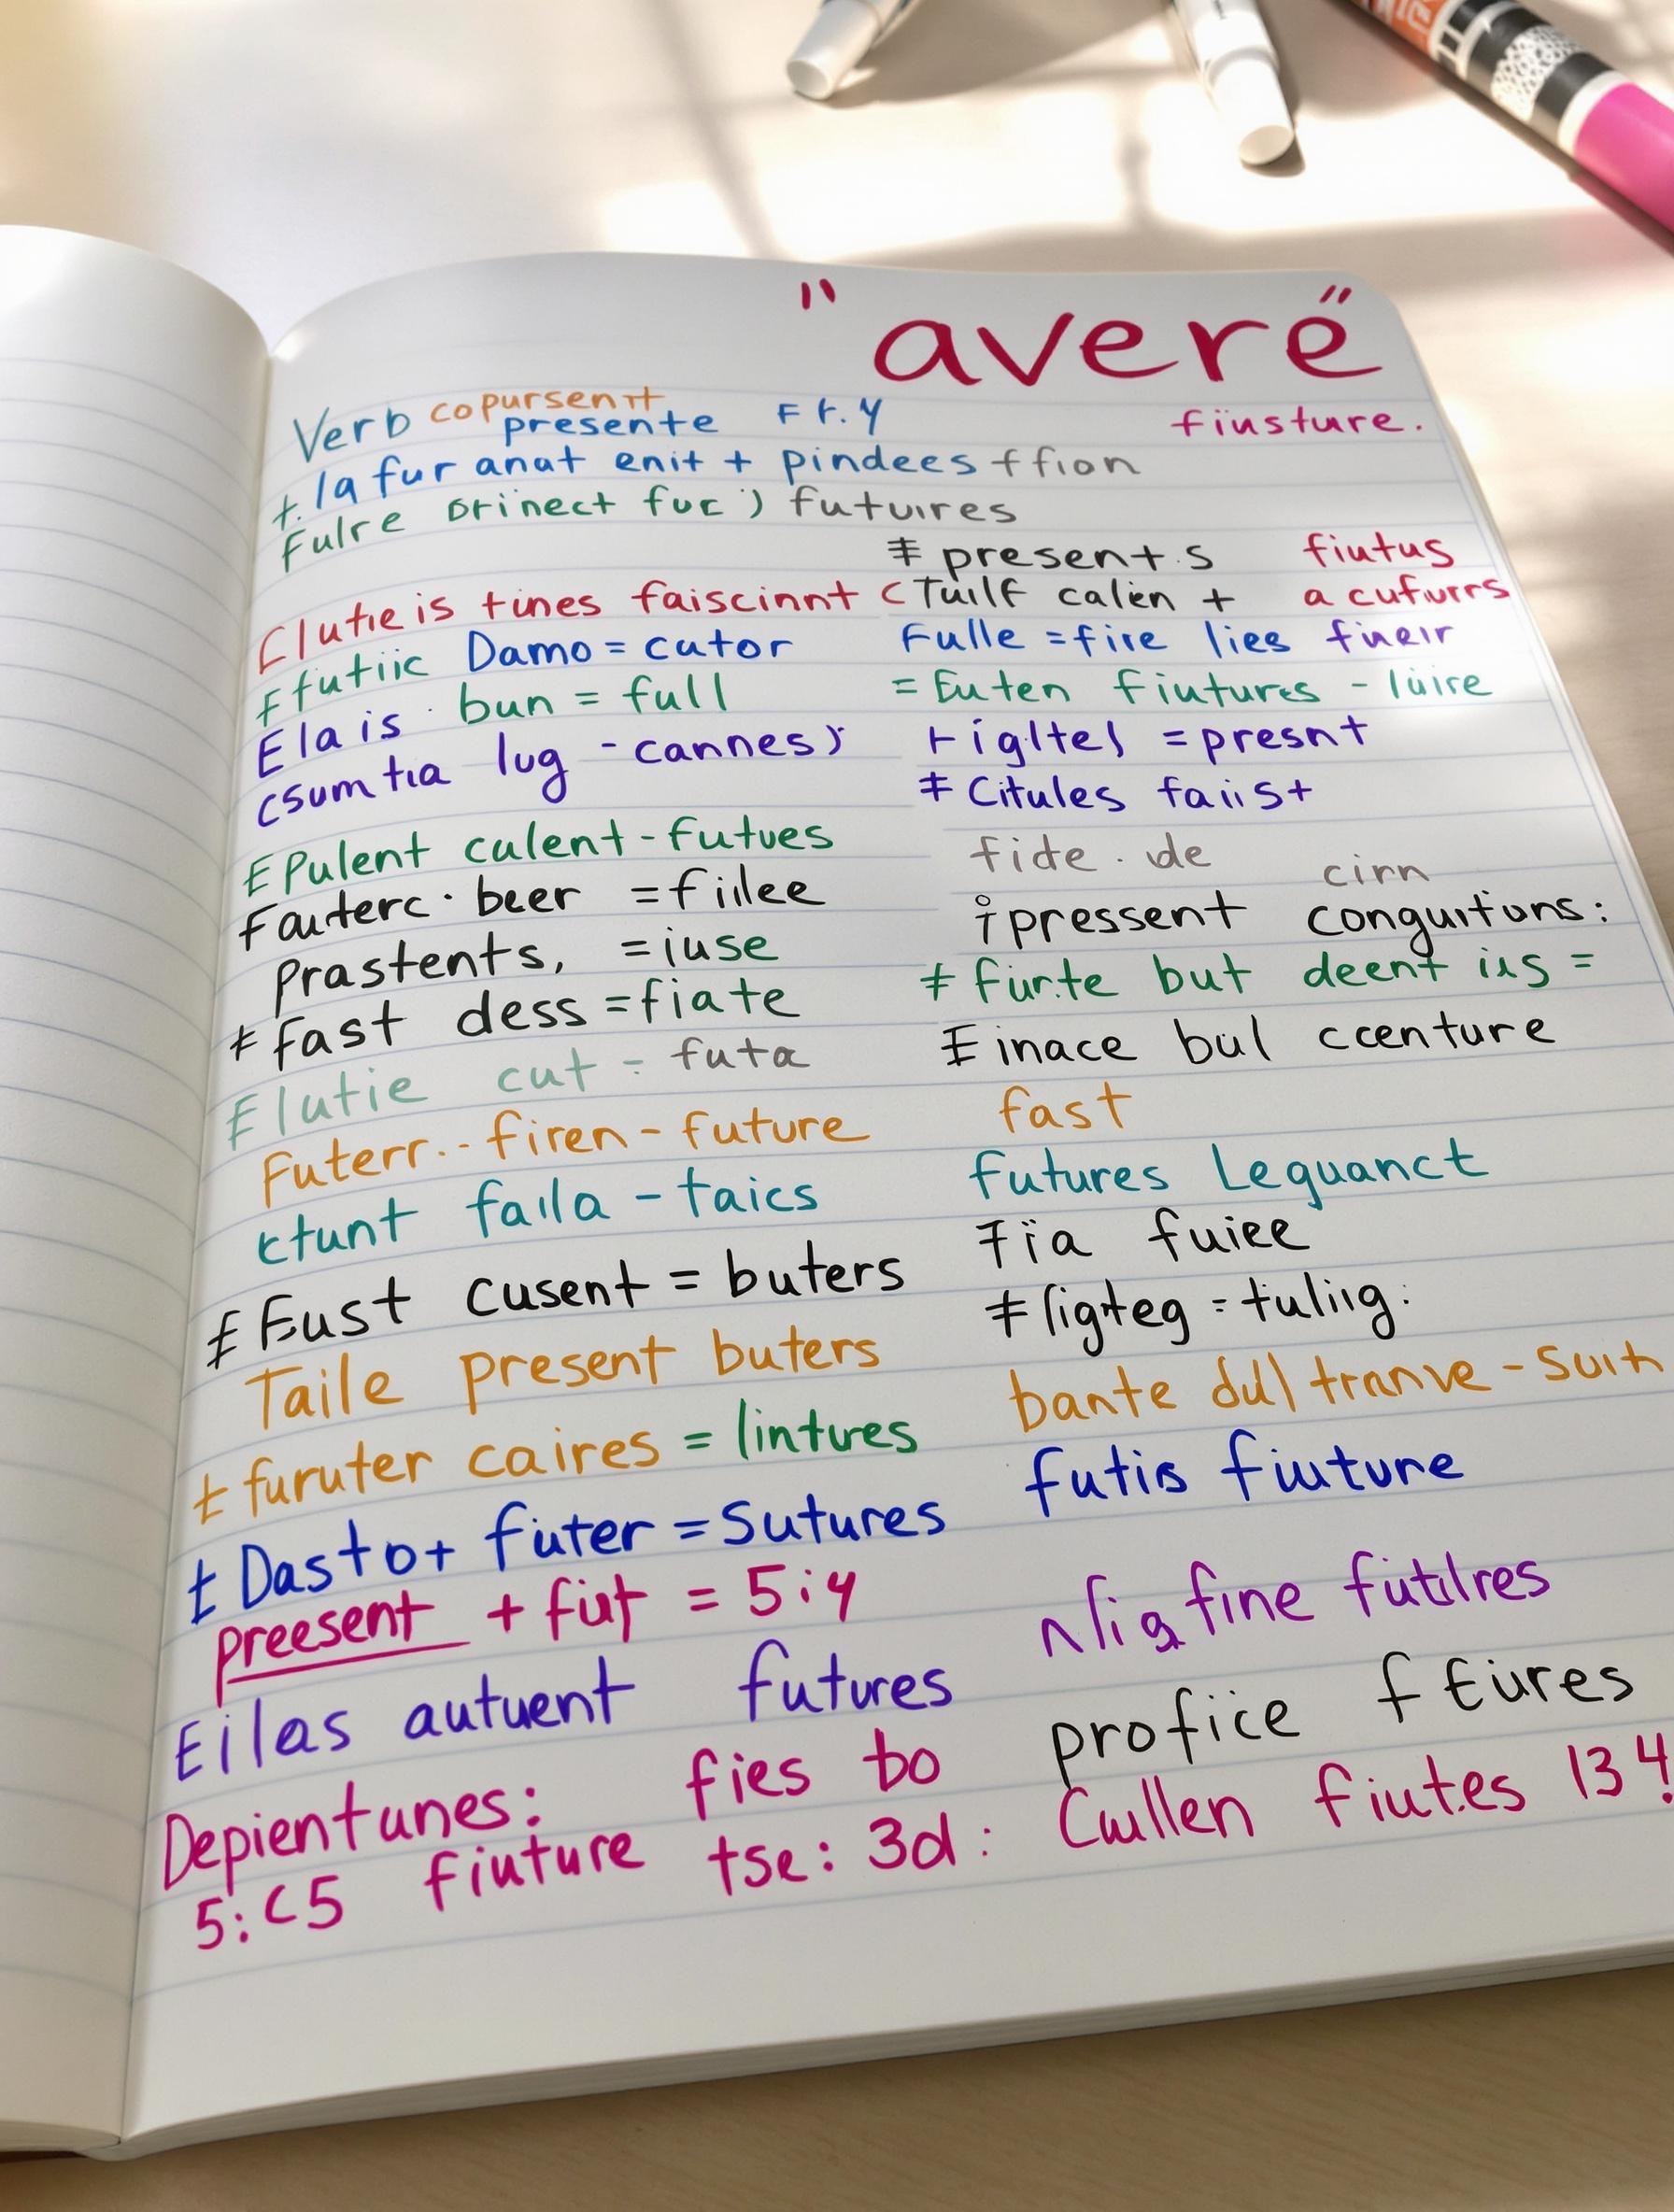 "avere"
Verb copursent
presente Ft.y fiusture.
t. la fur anat enit + pindees ffion
Fulre futuires
‡ present.s fiutus
Clutie is tines faiscinnt cTuilf calen + a cufurrs
Ffutiic Damo = cutor Fulle = fire lies fueir
Elais · bun = full = Euten fiutures - luire
csumtia lug - cannes) rigltel = presnt
‡ Citules faiist
EPulent calent - Futves fide · de cirn
Fauterc · beer = fiilee pressent conguitons:
prastents, = iuse ‡ furte but deent iis =
‡ fast dess = fiate inace bul ccenture
Elutie cut = futa
Futerr.. - firen - future fast
ctunt faila - taics futures Leguanct
‡ Eust cusent = buters Fia fuiee
Taile present buters ‡ ligteg = tuliig:
t furuter caires = lintures bante dul tranve - suih
t Dasto+ futer = Sutures futis fiuture
preesent + fut = 5:4 fine futdres
Eilas autuent futures profice f Eures
Depientunes: fies to Cullen fiut.es 134!
5:c5 fiuture tse: 3d: